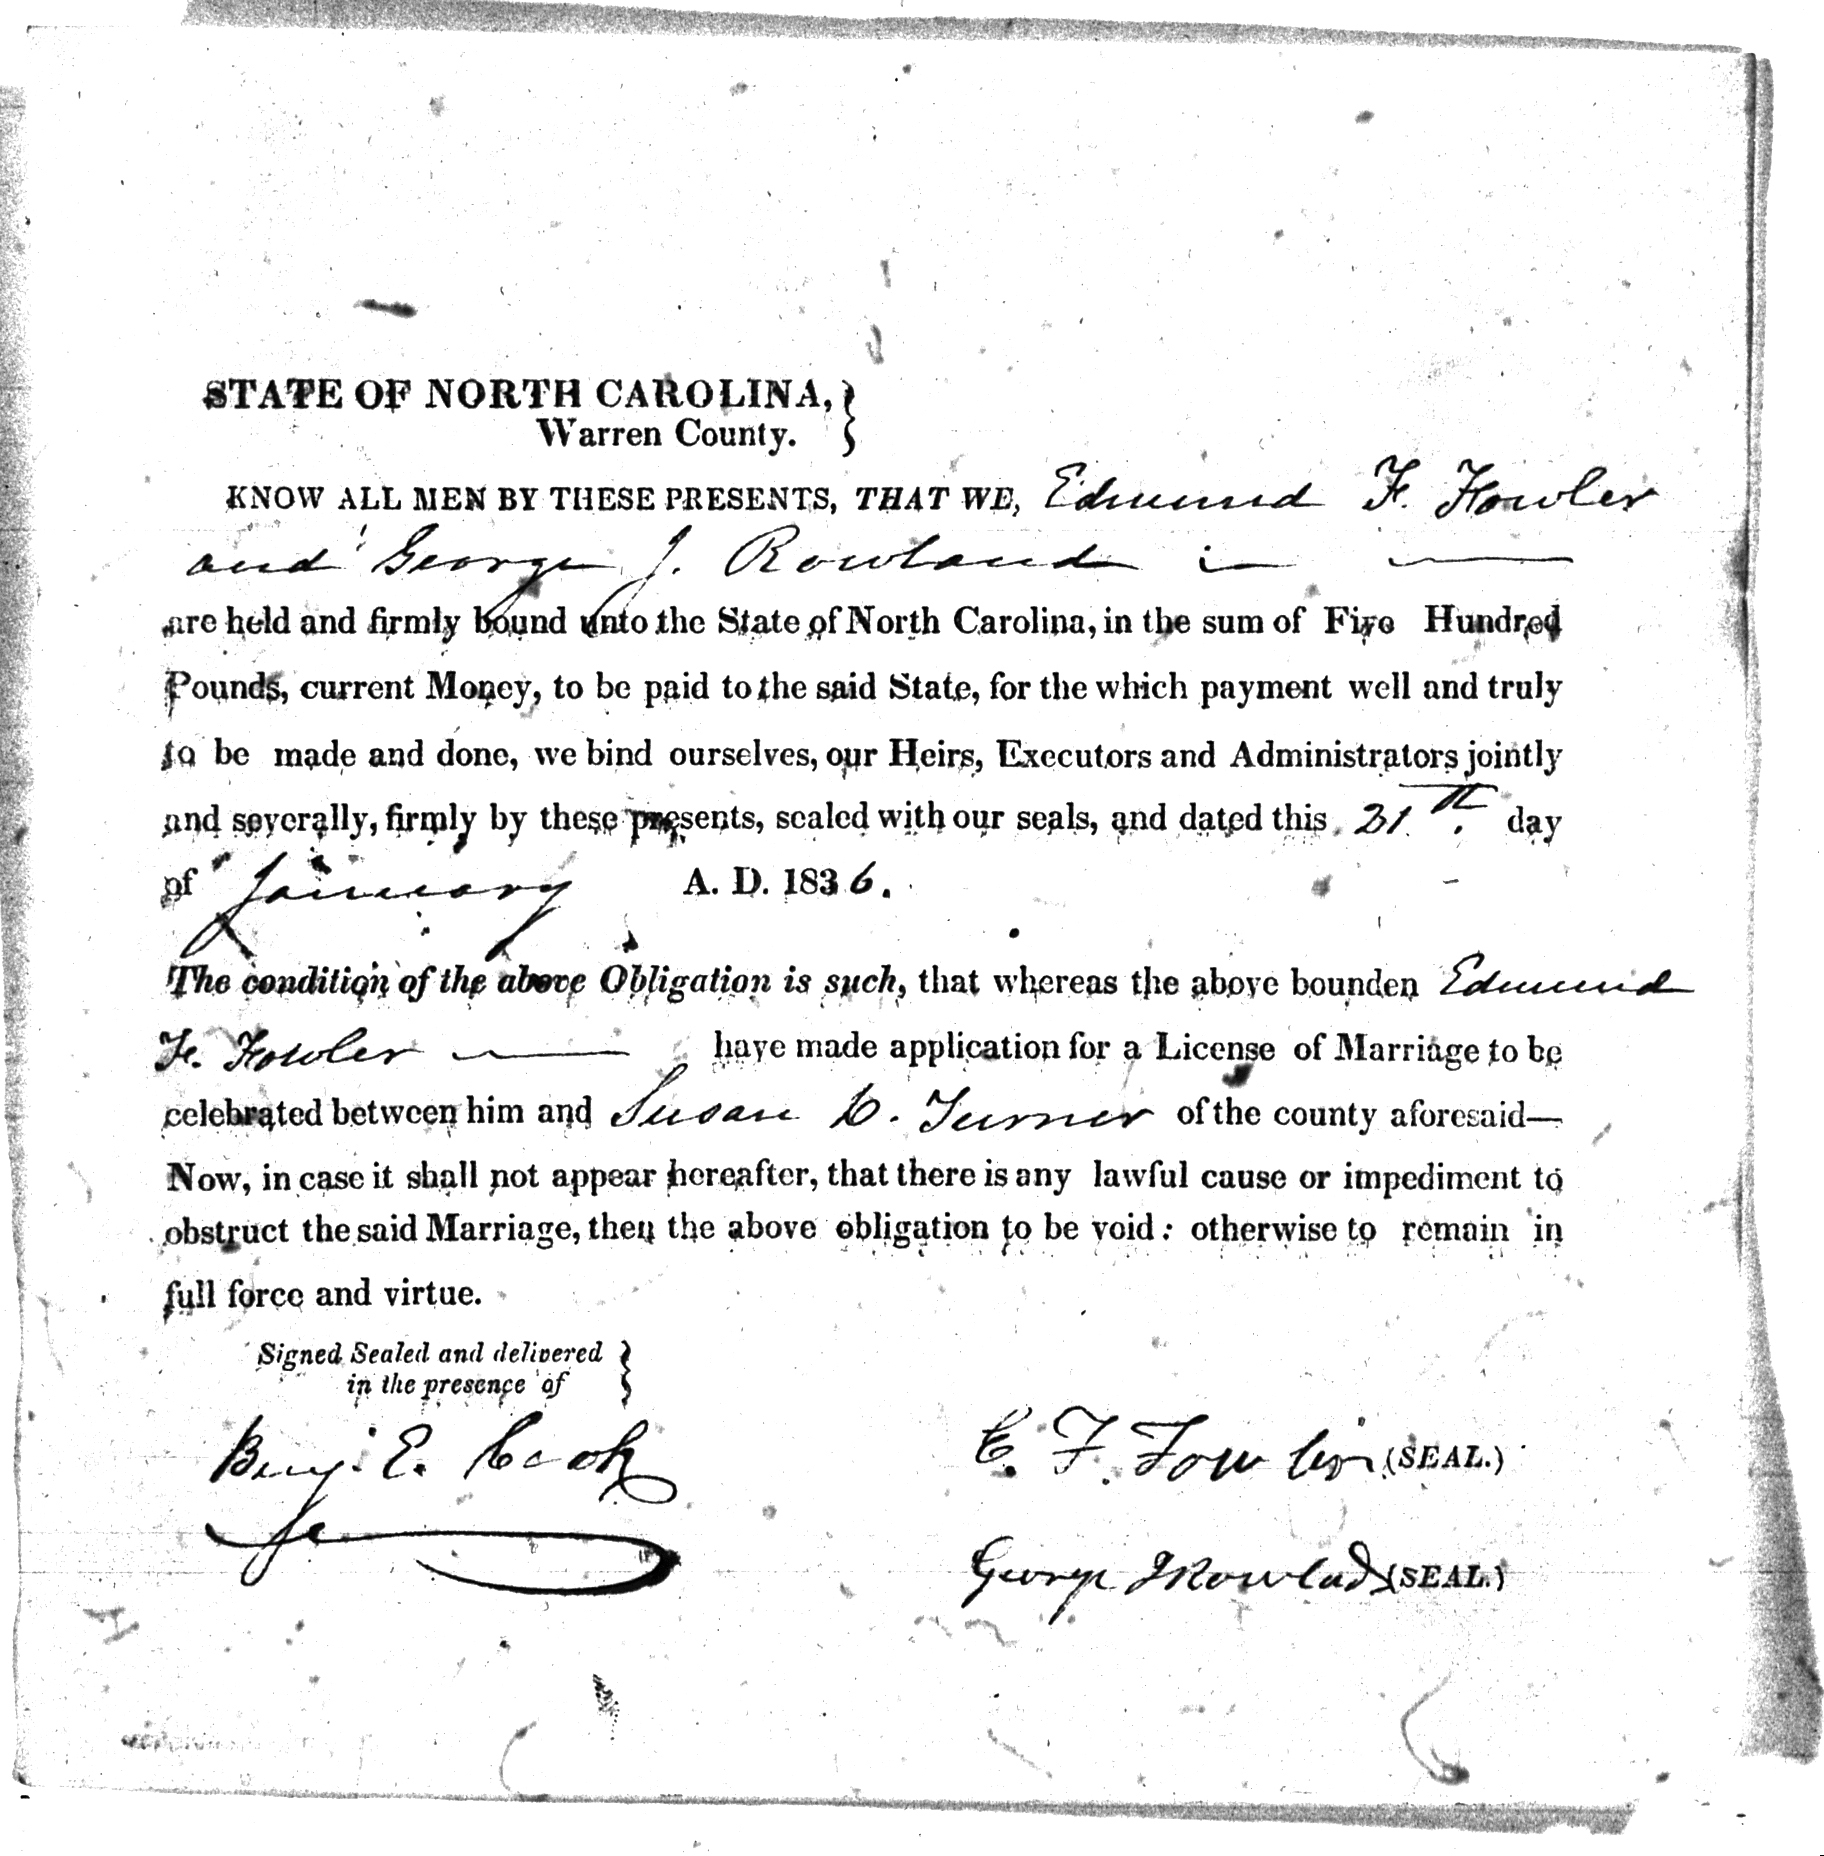 STATE OF NORTH CAROLINA,
Warren County.
KNOW ALL MEN BY THESE PRESENTS, THAT WE, Edmund F. Fowler
and George J. Rowland
are held and firmly bound unto the State of North Carolina, in the sum of Five Hundred
Pounds, current Money, to be paid to the said State, for the which payment well and truly
to be made and done, we bind ourselves, our Heirs, Executors and Administrators jointly
and severally, firmly by these presents, sealed with our seals, and dated this 21th. day
of January A. D. 1836.
The condition of the above Obligation is such, that whereas the above bounden Edmund
F. Fowler have made application for a License of Marriage to be
celebrated between him and Susan Turner of the county aforesaid—
Now, in case it shall not appear hereafter, that there is any lawful cause or impediment to
obstruct the said Marriage, then the above obligation to be void: otherwise to remain in
full force and virtue.
Signed Sealed and delivered
in the presence of
Benj. E. Cook
E. F. Fowler (SEAL.)
George J Rowland (SEAL.)